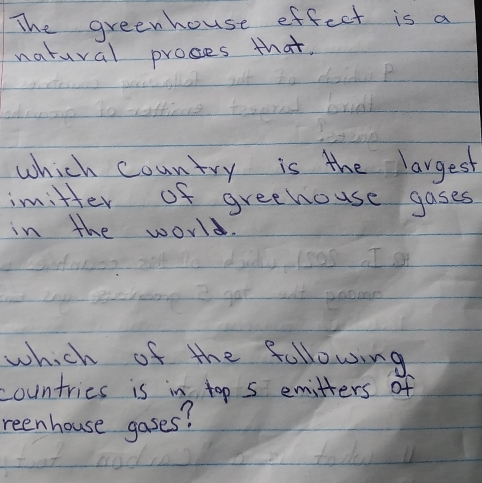 The greenhouse effect is a
natural proces that.
which country is the largest
imitter of greehouse gases
in the world.
which of the following
countries is in top 5 emitters of
reenhouse gases?